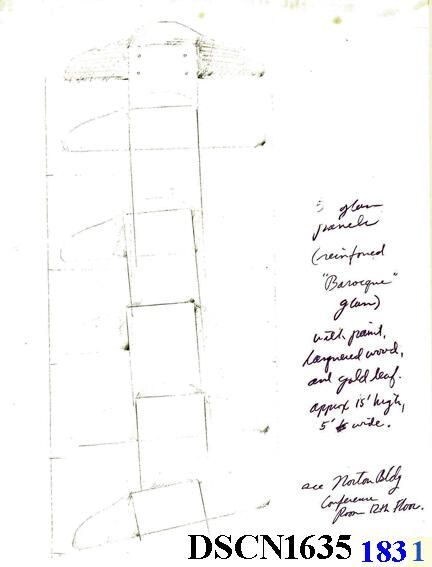 5 glass
panels
(reinforced
"Baroque"
glass)
with paint,
laquered wood,
and gold leaf.
approx 15' high,
5' wide.
see Norton Bldg
Conference
Room 12th Floor.
DSCN1635 1831